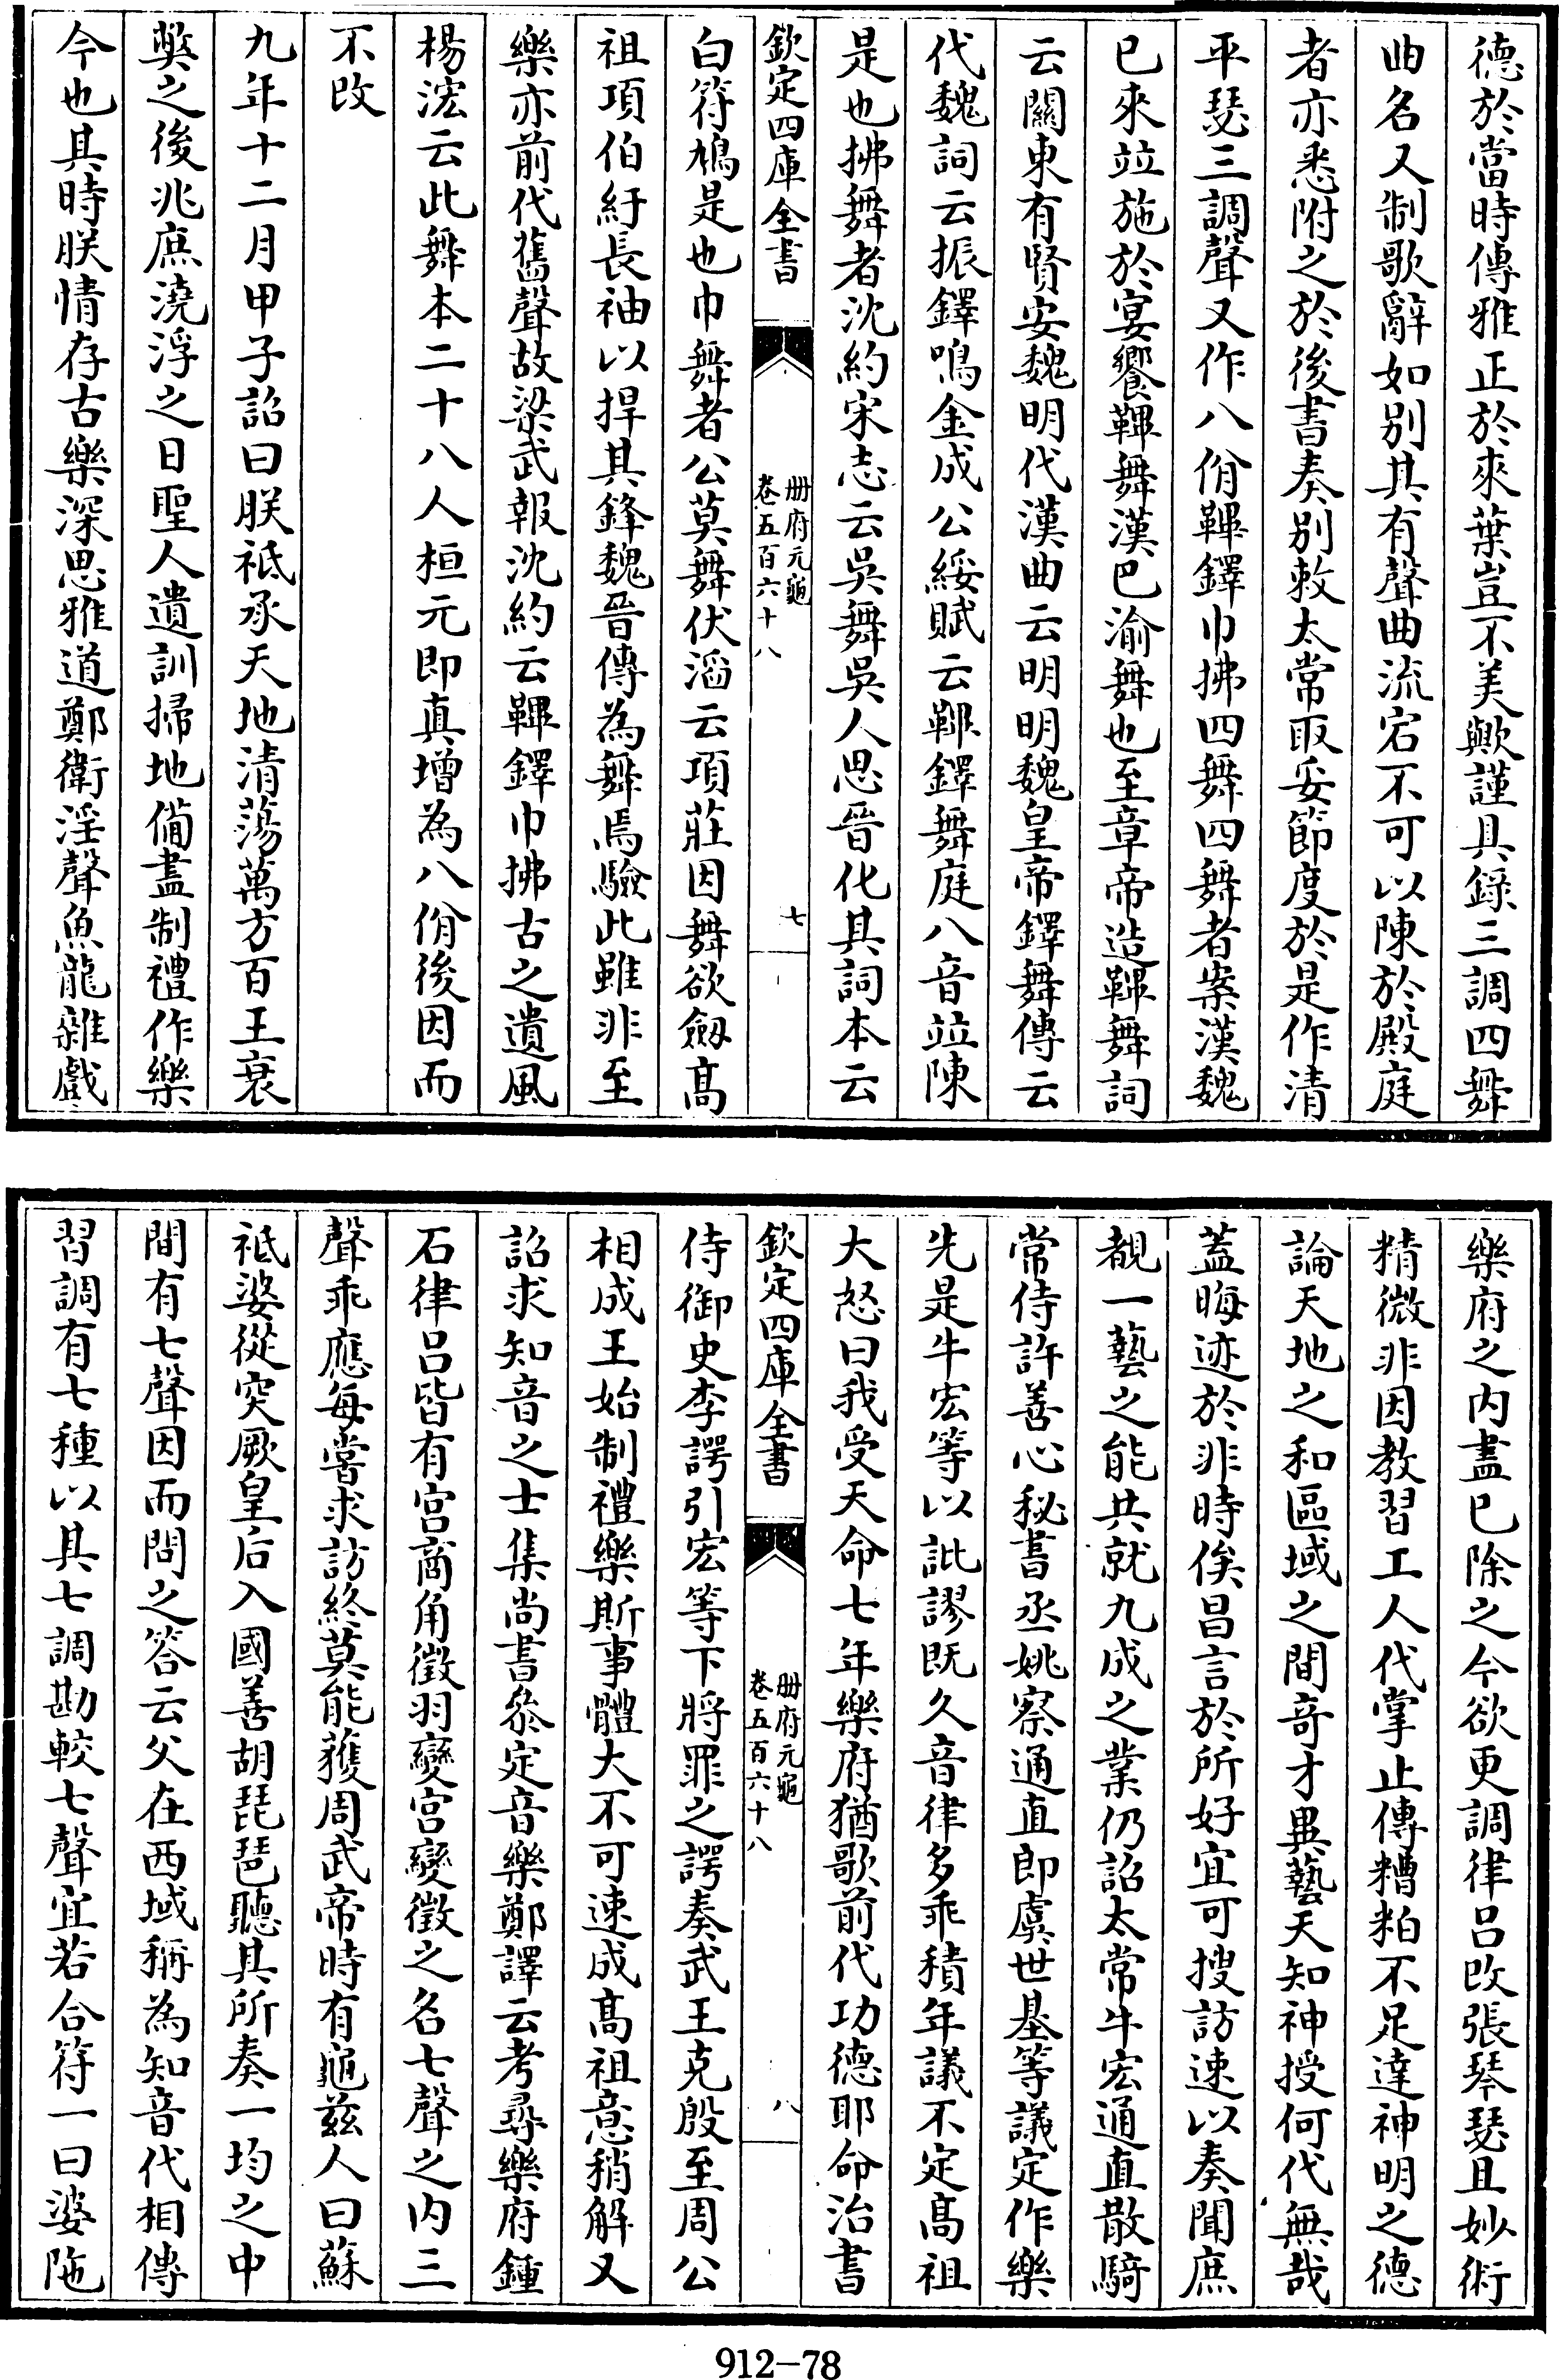 德於當時傳雅正於來葉豈不美歟謹具錄三調四舞
曲名又制歌辭如别其有聲曲流宕不可以陳於殿庭
者亦悉附之於後書奏别敕太常取妥節度於是作清
平瑟三調聲又作八佾鞞鐸巾拂四舞四舞者案漢魏
已來竝施於宴饗鞞舞漢巴渝舞也至章帝造鞞舞詞
云關東有賢安魏明代漢曲云明明魏皇帝鐸舞傳云
代魏詞云振鐸鳴金成公綏賦云鞞鐸舞庭八音竝陳
是也拂舞者沈約宋志云吳舞吳人思晉化其詞本云
欽定四庫全書
册府元龜
卷五百六十八
七
白符鳩是也巾舞者公莫舞伏滔云項莊因舞欲劒髙
祖項伯紆長袖以捍其鋒魏晉傳為舞焉驗此雖非至
樂亦前代舊聲故梁武報沈約云鞞鐸巾拂古之遺風
楊浤云此舞本二十八人桓元即真增為八佾後因而
不改
九年十二月甲子詔曰朕祗承天地清蕩萬方百王衰
獘之後兆庶澆浮之日聖人遺訓掃地俻盡制禮作樂
今也其時朕情存古樂深思雅道鄭衛淫聲魚龍雜戲
樂府之内盡已除之今欲更調律呂改張琴瑟且妙術
精微非因教習工人代掌止傳糟粕不足達神明之德
論天地之和區域之間竒才異藝天知神授何代無哉
葢晦迹於非時俟昌言於所好宜可搜訪速以奏聞庶
覩一藝之能共就九成之業仍詔太常牛宏通直散騎
常侍許善心秘書丞姚察通直郎虞世基等議定作樂
先是牛宏等以訛謬既久音律多乖積年議不定髙祖
大怒曰我受天命七年樂府猶歌前代功德耶命治書
欽定四庫全書
册府元龜
卷五百六十八
八
侍御史李諤引宏等下將罪之諤奏武王克殷至周公
相成王始制禮樂斯事體大不可速成髙祖意稍解又
詔求知音之士集尚書叅定音樂鄭譯云考尋樂府鍾
石律呂皆有宫商角徵羽變宫變徵之名七聲之内三
聲乖應每嘗求訪終莫能獲周武帝時有龜兹人曰蘇
祇婆從突厥皇后入國善胡琵琶聽其所奏一均之中
間有七聲因而問之答云父在西域稱為知音代相傳
習調有七種以其七調勘較七聲宜若合符一曰娑陁
912-78